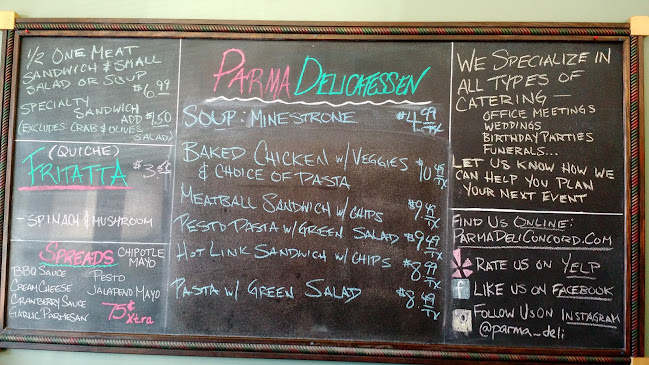 1/2 ONE MEAT
SANDWICH & SMALL
SALAD OR SOUP
$6.99
SPECIALTY
SANDWICH
ADD $1.50
(EXCLUDES: CRAB & OLIVES
SALAD)
(QUICHE)
FRITATTA
- SPINACH & MUSHROOM
SPREADS
CHIPOTLE
MAYO
BBQ SAUCE
PESTO
CREAM CHEESE
JALAPENO MAYO
CRANBERRY SAUCE
GARLIC PARMESAN
75¢
Xtra
PARMA DELICATESSEN
SOUP: MINESTRONE $4.99 TX
BAKED CHICKEN W/ VEGGIES
& CHOICE OF PASTA
$10.49 TX
MEATBALL SANDWICH W/ CHIPS $9.49 TX
PESTO PASTA W/ GREEN SALAD $9.49 TX
HOT LINK SANDWICH W/ CHIPS $8.99 TX
PASTA W/ GREEN SALAD $8.49 TX
WE SPECIALIZE IN
ALL TYPES OF
CATERING —
OFFICE MEETINGS
WEDDINGS
BIRTHDAY PARTIES
FUNERALS...
LET US KNOW HOW WE
CAN HELP YOU PLAN
YOUR NEXT EVENT
FIND US ONLINE:
PARMADELICONCORD.COM
RATE US ON YELP
f LIKE US ON FACEBOOK
FOLLOW US ON INSTAGRAM
@parma_deli